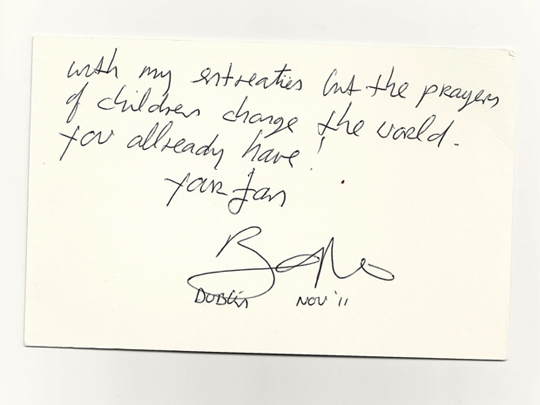 with my entreaties but the prayers
of children change the world.
You allready have!
Your fan
Bono
DUBLIN NOV '11